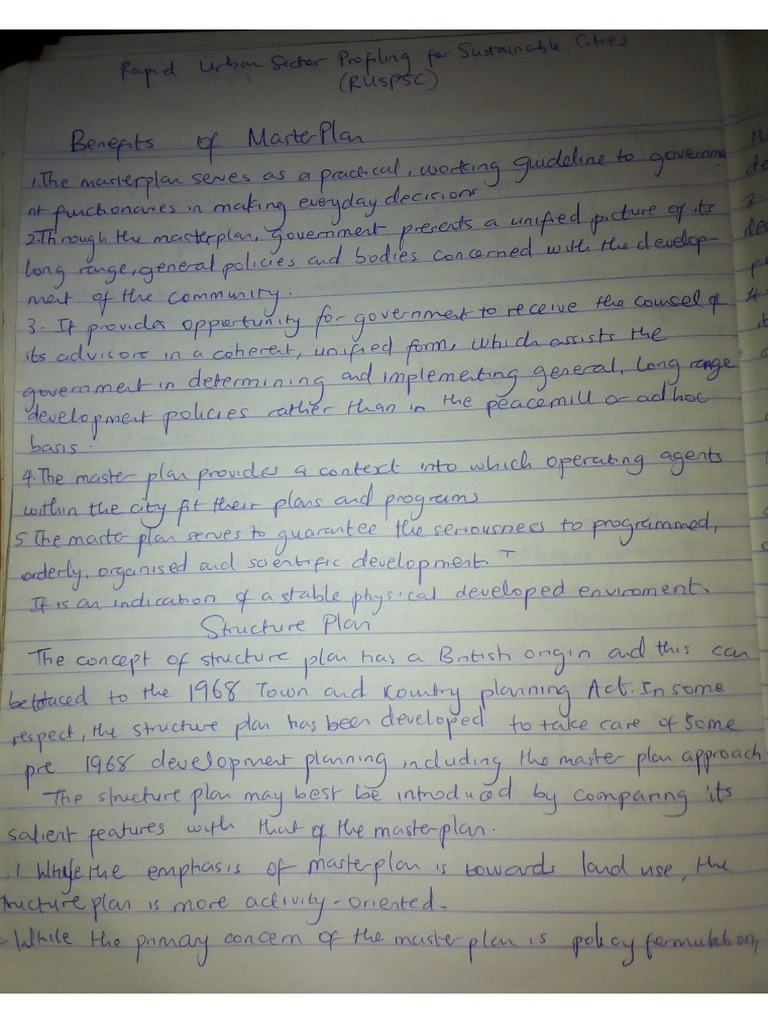 Rapid Urban Sector Profiling for Sustainable Cities
(RUSPSC)
Benefits of MasterPlan
1. The masterplan serves as a practical, working guideline to governme
nt functionaries in making everyday decisions
2. Through the masterplan, government presents a unified picture of its
long range, general policies and bodies concerned with the develop-
ment of the community.
3. It provides opportunity for government to receive the counsel of
its advisors in a coherent, unified form, which assists the
government in determining and implementing general, long range
development policies rather than in the peacemill or ad hoc
basis.
4. The master plan provides a context into which operating agents
within the city fit their plans and programs
5 The master plan serves to guarantee the seriousness to programmed,
orderly, organised and scientific development. T
It is an indication of a stable physical developed enviroment.
Structure Plan
The concept of structure plan has a British origin and this can
to the 1968 Town and Kountry planning Act. In some
respect, the structure plan has been developed to take care of some
pre 1968 development planning including the master plan approach
The structure plan may best be introduced by comparing its
salient features with that of the masterplan.
1 the emphasis of masterplan is towards land use, the
tructure plan is more activity-oriented.
- While the primary concern of the master plan is policy formulation,